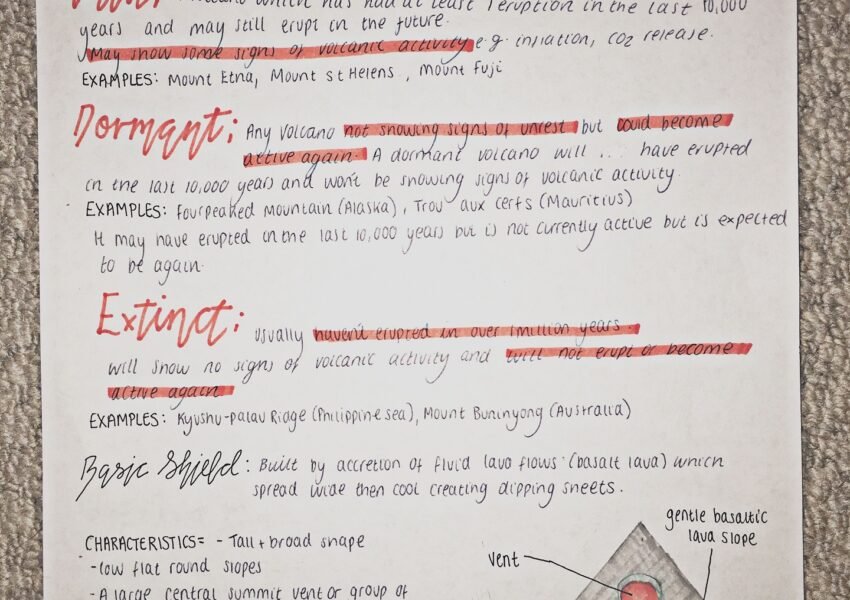 Volcano which has had at least 1 eruption in the last 10,000
years and may still erupt in the future.
May show some signs of volcanic activity e.g. inflation, CO2 release.
EXAMPLES: Mount Etna, Mount St Helens, Mount Fuji
Dormant; Any volcano not showing signs of unrest but could become
active again. A dormant volcano will ... have erupted
in the last 10,000 years and won't be showing signs of volcanic activity.
EXAMPLES: Fourpeaked Mountain (Alaska), Trou aux cerfs (Mauritius)
It may have erupted in the last 10,000 years but is not currently active but is expected
to be again.
Extinct; Usually haven't erupted in over 1 million years.
will show no signs of volcanic activity and will not erupt or become
active again.
EXAMPLES: Kyushu-Palau Ridge (Philippine sea), Mount Buninyong (Australia)
Basic Shield: Built by accretion of fluid lava flows (basalt lava) which
spread wide then cool creating dipping sheets.
gentle basaltic
lava slope
CHARACTERISTICS= - Tall + broad shape
Vent
-low flat round slopes
-A large central summit vent or group of